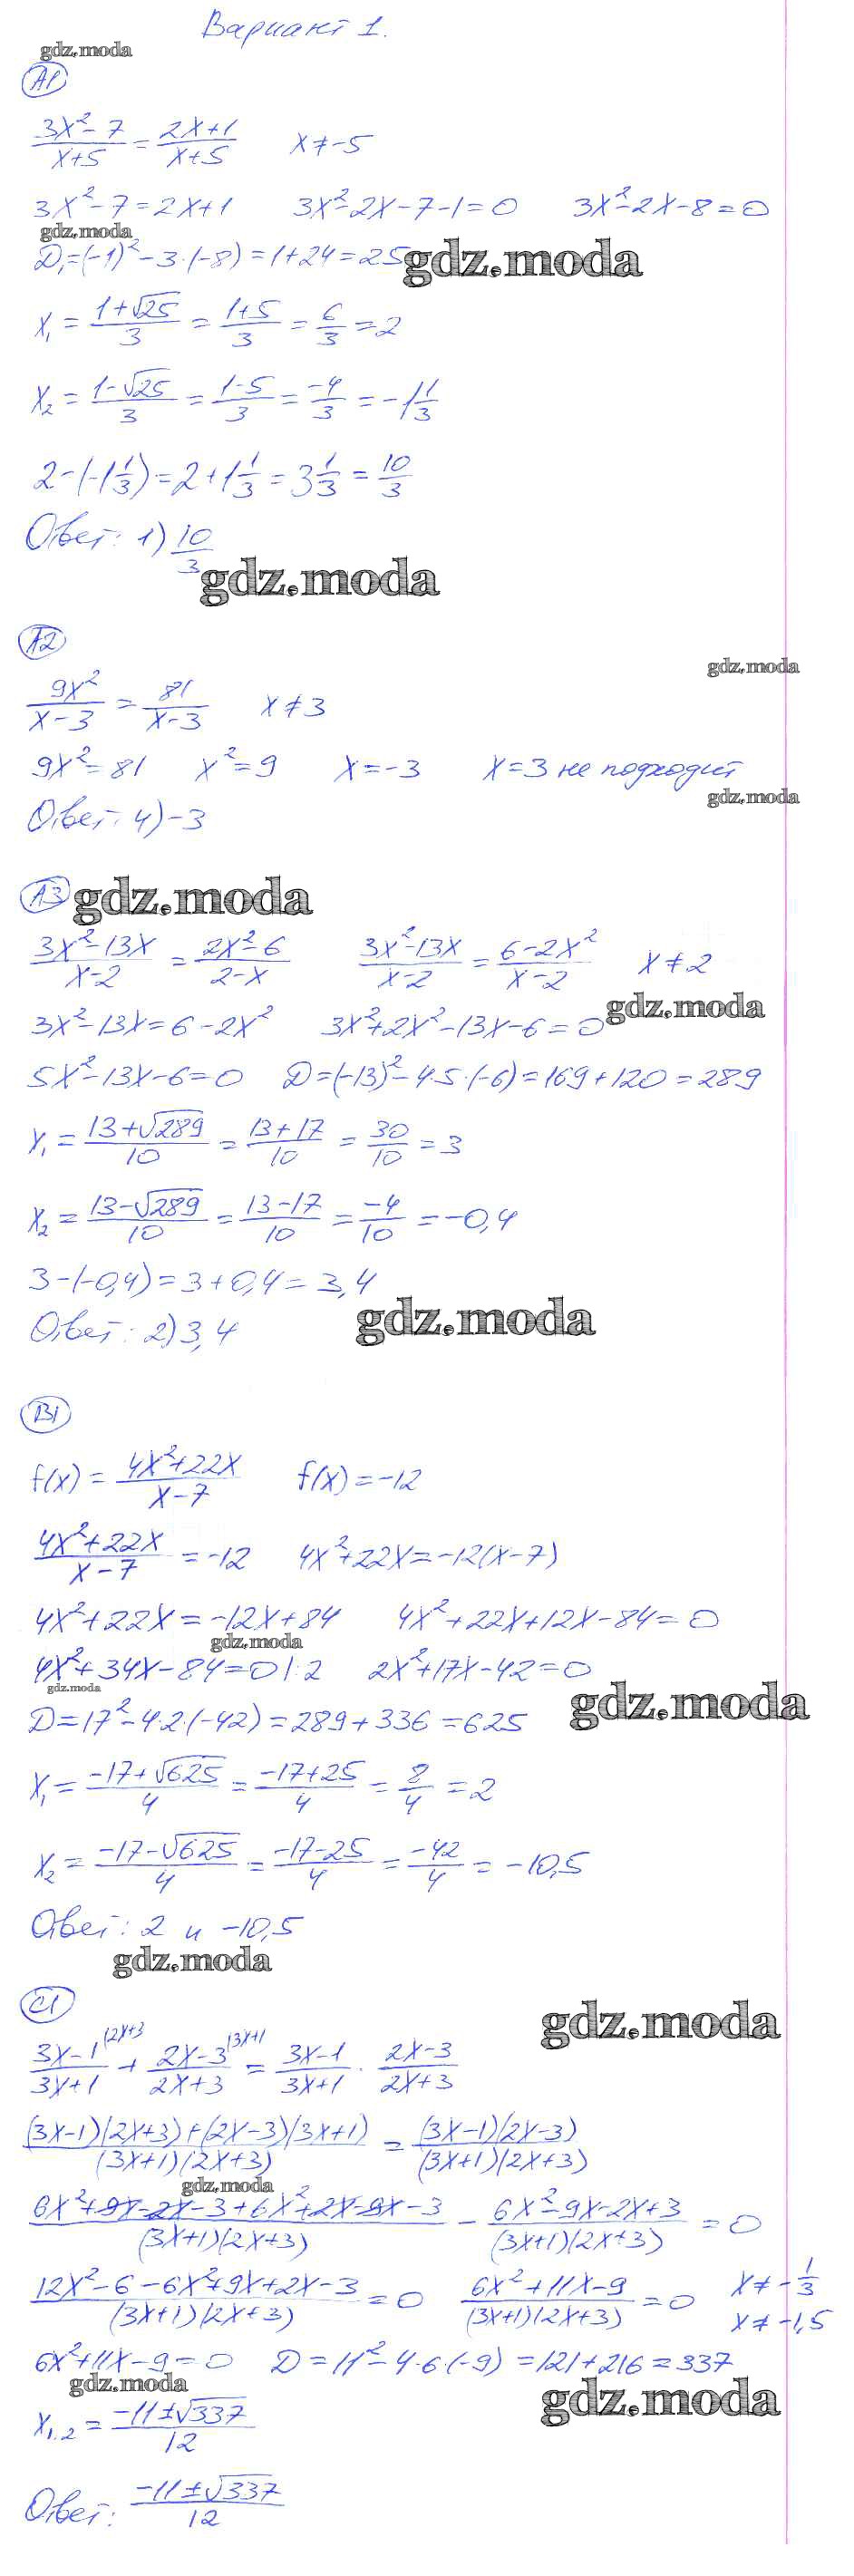 Вариант 1.
gdz.moda
A1
(3x²-7)/(x+5) = (2x+1)/(x+5)   x≠-5
3x²-7=2x+1   3x²-2x-7-1=0   3x²-2x-8=0
gdz.moda
D₁=(-1)²-3·(-8)=1+24=25
gdz.moda
x₁ = (1+√25)/3 = (1+5)/3 = 6/3 = 2
x₂ = (1-√25)/3 = (1-5)/3 = -4/3 = -1 1/3
2-(-1 1/3)=2+1 1/3=3 1/3=10/3
Ответ: 1) 10/3
gdz.moda
A2
gdz.moda
9x²/(x-3) = 81/(x-3)   x≠3
9x²=81   x²=9   x=-3   x=3 не подходит
gdz.moda
Ответ: 4) -3
A3 gdz.moda
(3x²-13x)/(x-2) = (2x²-6)/(2-x)   (3x²-13x)/(x-2) = (6-2x²)/(x-2)   x≠2
gdz.moda
3x²-13x=6-2x²   3x²+2x²-13x-6=0
5x²-13x-6=0   D=(-13)²-4·5·(-6)=169+120=289
x₁ = (13+√289)/10 = (13+17)/10 = 30/10 = 3
x₂ = (13-√289)/10 = (13-17)/10 = -4/10 = -0,4
3-(-0,4)=3+0,4=3,4
Ответ: 2) 3,4
gdz.moda
B1
f(x) = (4x²+22x)/(x-7)   f(x)=-12
(4x²+22x)/(x-7) = -12   4x²+22x=-12(x-7)
4x²+22x=-12x+84   4x²+22x+12x-84=0
gdz.moda
4x²+34x-84=0 |:2   2x²+17x-42=0
gdz.moda
gdz.moda
D=17²-4·2·(-42)=289+336=625
x₁ = (-17+√625)/4 = (-17+25)/4 = 8/4 = 2
x₂ = (-17-√625)/4 = (-17-25)/4 = -42/4 = -10,5
Ответ: 2 и -10,5
gdz.moda
C1
gdz.moda
(3x-1)/(3x+1) |2x+3 + (2x-3)/(2x+3) |3x+1 = (3x-1)/(3x+1) · (2x-3)/(2x+3)
((3x-1)(2x+3)+(2x-3)(3x+1))/((3x+1)(2x+3)) = ((3x-1)(2x-3))/((3x+1)(2x+3))
gdz.moda
(6x²+9x-2x-3+6x²+2x-9x-3)/((3x+1)(2x+3)) - (6x²-9x-2x+3)/((3x+1)(2x+3)) = 0
(12x²-6-6x²+9x+2x-3)/((3x+1)(2x+3)) = 0   (6x²+11x-9)/((3x+1)(2x+3)) = 0   x≠-1/3
x≠-1,5
6x²+11x-9=0   D=11²-4·6·(-9)=121+216=337
gdz.moda
gdz.moda
x₁,₂ = (-11±√337)/12
Ответ: (-11±√337)/12